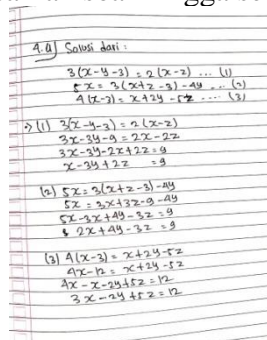 4.a) Solusi dari :
3(x-y-3) = 2(x-z) ... (1)
5x = 3(x+z-3)-4y ... (2)
4(x-3) = x+2y-5z .... (3)
=> (1) 3(x-y-3) = 2(x-z)
3x-3y-9 = 2x-2z
3x-3y-2x+2z = 9
x-3y+2z = 9
(2) 5x = 3(x+z-3)-4y
5x = 3x+3z-9-4y
5x-3x+4y-3z = 9
2x+4y-3z = 9
(3) 4(x-3) = x+2y-5z
4x-12 = x+2y-5z
4x-x-2y+5z = 12
3x-2y+5z = 12